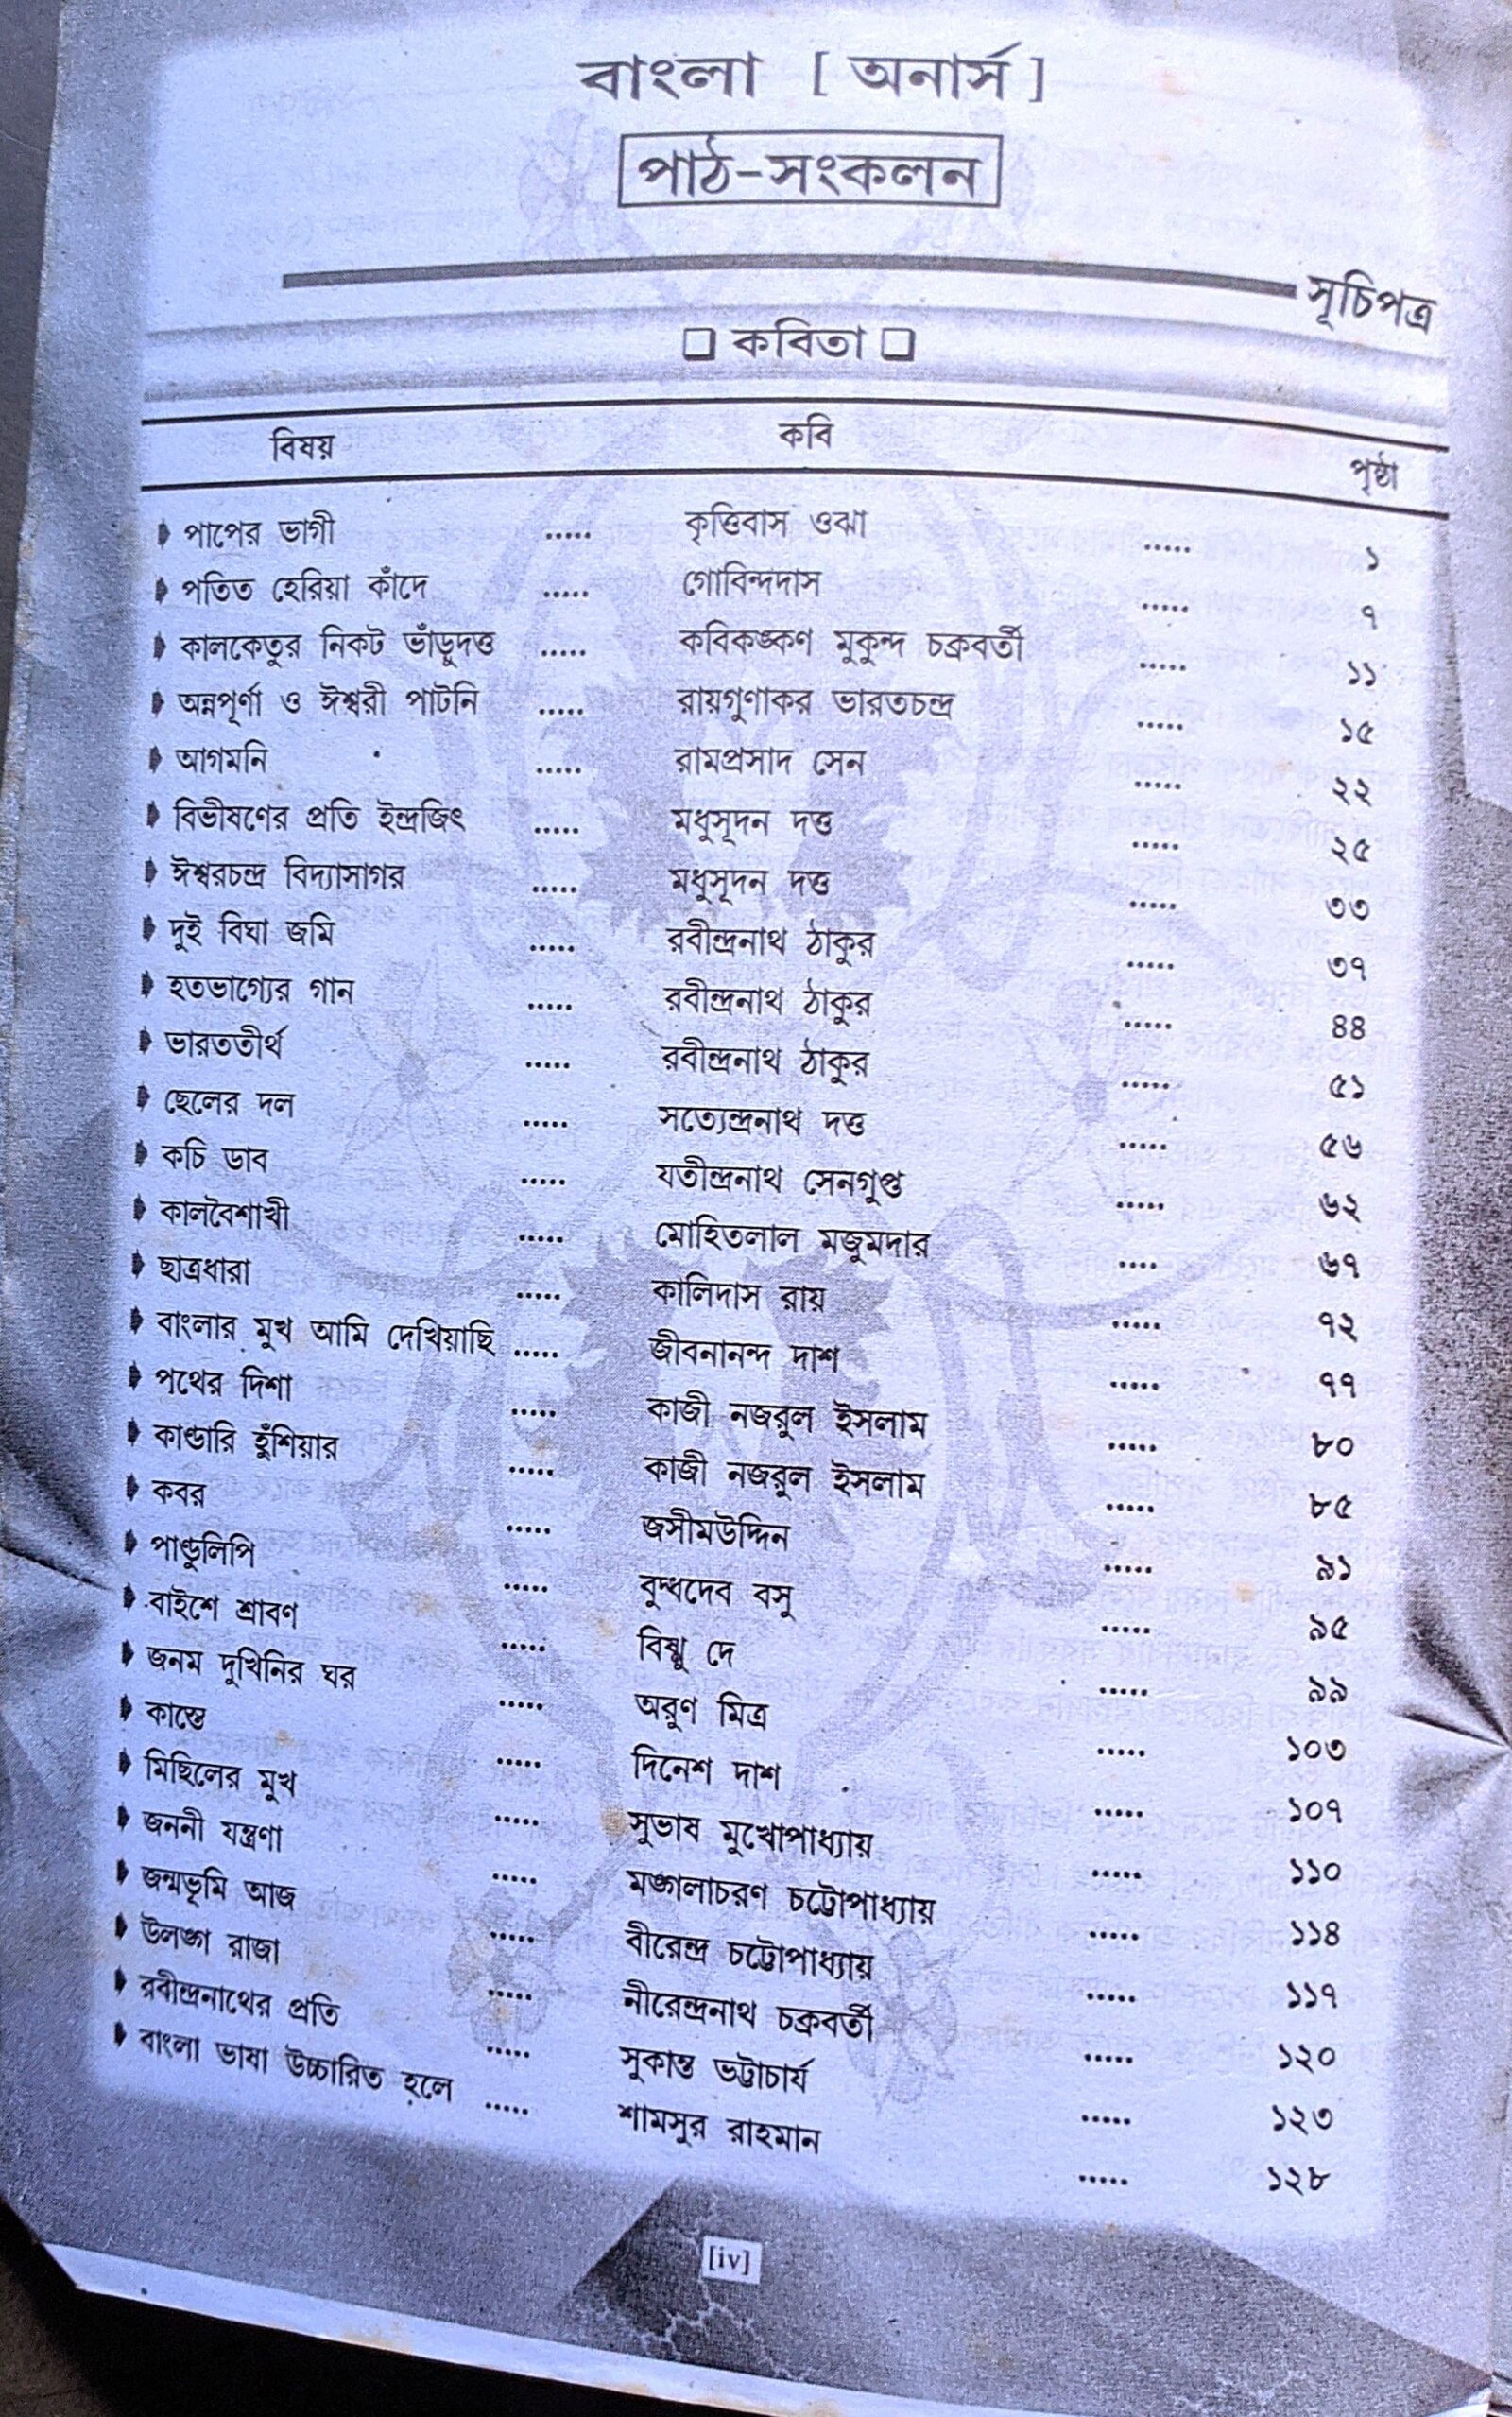 বাংলা [ অনার্স ]
পাঠ-সংকলন
সূচিপত্র
□ কবিতা □
বিষয় কবি পৃষ্ঠা
পাপের ভাগী ..... কৃত্তিবাস ওঝা ..... ১
পতিত হেরিয়া কাঁদে ..... গোবিন্দদাস ..... ৭
কালকেতুর নিকট ভাঁড়ুদত্ত ..... কবিকঙ্কণ মুকুন্দ চক্রবর্তী ..... ১১
অন্নপূর্ণা ও ঈশ্বরী পাটনি ..... রায়গুণাকর ভারতচন্দ্র ..... ১৫
আগমনি ..... রামপ্রসাদ সেন ..... ২২
বিভীষণের প্রতি ইন্দ্রজিৎ ..... মধুসূদন দত্ত ..... ২৫
ঈশ্বরচন্দ্র বিদ্যাসাগর ..... মধুসূদন দত্ত ..... ৩৩
দুই বিঘা জমি ..... রবীন্দ্রনাথ ঠাকুর ..... ৩৭
হতভাগ্যের গান ..... রবীন্দ্রনাথ ঠাকুর ..... ৪৪
ভারততীর্থ ..... রবীন্দ্রনাথ ঠাকুর ..... ৫১
ছেলের দল ..... সত্যেন্দ্রনাথ দত্ত ..... ৫৬
কচি ডাব ..... যতীন্দ্রনাথ সেনগুপ্ত ..... ৬২
কালবৈশাখী ..... মোহিতলাল মজুমদার .... ৬৭
ছাত্রধারা ..... কালিদাস রায় ..... ৭২
বাংলার মুখ আমি দেখিয়াছি ..... জীবনানন্দ দাশ ..... ৭৭
পথের দিশা ..... কাজী নজরুল ইসলাম ..... ৮০
কাণ্ডারি হুঁশিয়ার ..... কাজী নজরুল ইসলাম ..... ৮৫
কবর ..... জসীমউদ্দিন ..... ৯১
পাণ্ডুলিপি ..... বুদ্ধদেব বসু ..... ৯৫
বাইশে শ্রাবণ ..... বিষ্ণু দে ..... ৯৯
জনম দুখিনির ঘর ..... অরুণ মিত্র ..... ১০৩
কাস্তে ..... দিনেশ দাশ ..... ১০৭
মিছিলের মুখ ..... সুভাষ মুখোপাধ্যায় ..... ১১০
জননী যন্ত্রণা ..... মঙ্গলাচরণ চট্টোপাধ্যায় ..... ১১৪
জন্মভূমি আজ ..... বীরেন্দ্র চট্টোপাধ্যায় ..... ১১৭
উলঙ্গ রাজা ..... নীরেন্দ্রনাথ চক্রবর্তী ..... ১২০
রবীন্দ্রনাথের প্রতি ..... সুকান্ত ভট্টাচার্য ..... ১২৩
বাংলা ভাষা উচ্চারিত হলে ..... শামসুর রাহমান ..... ১২৮
[iv]